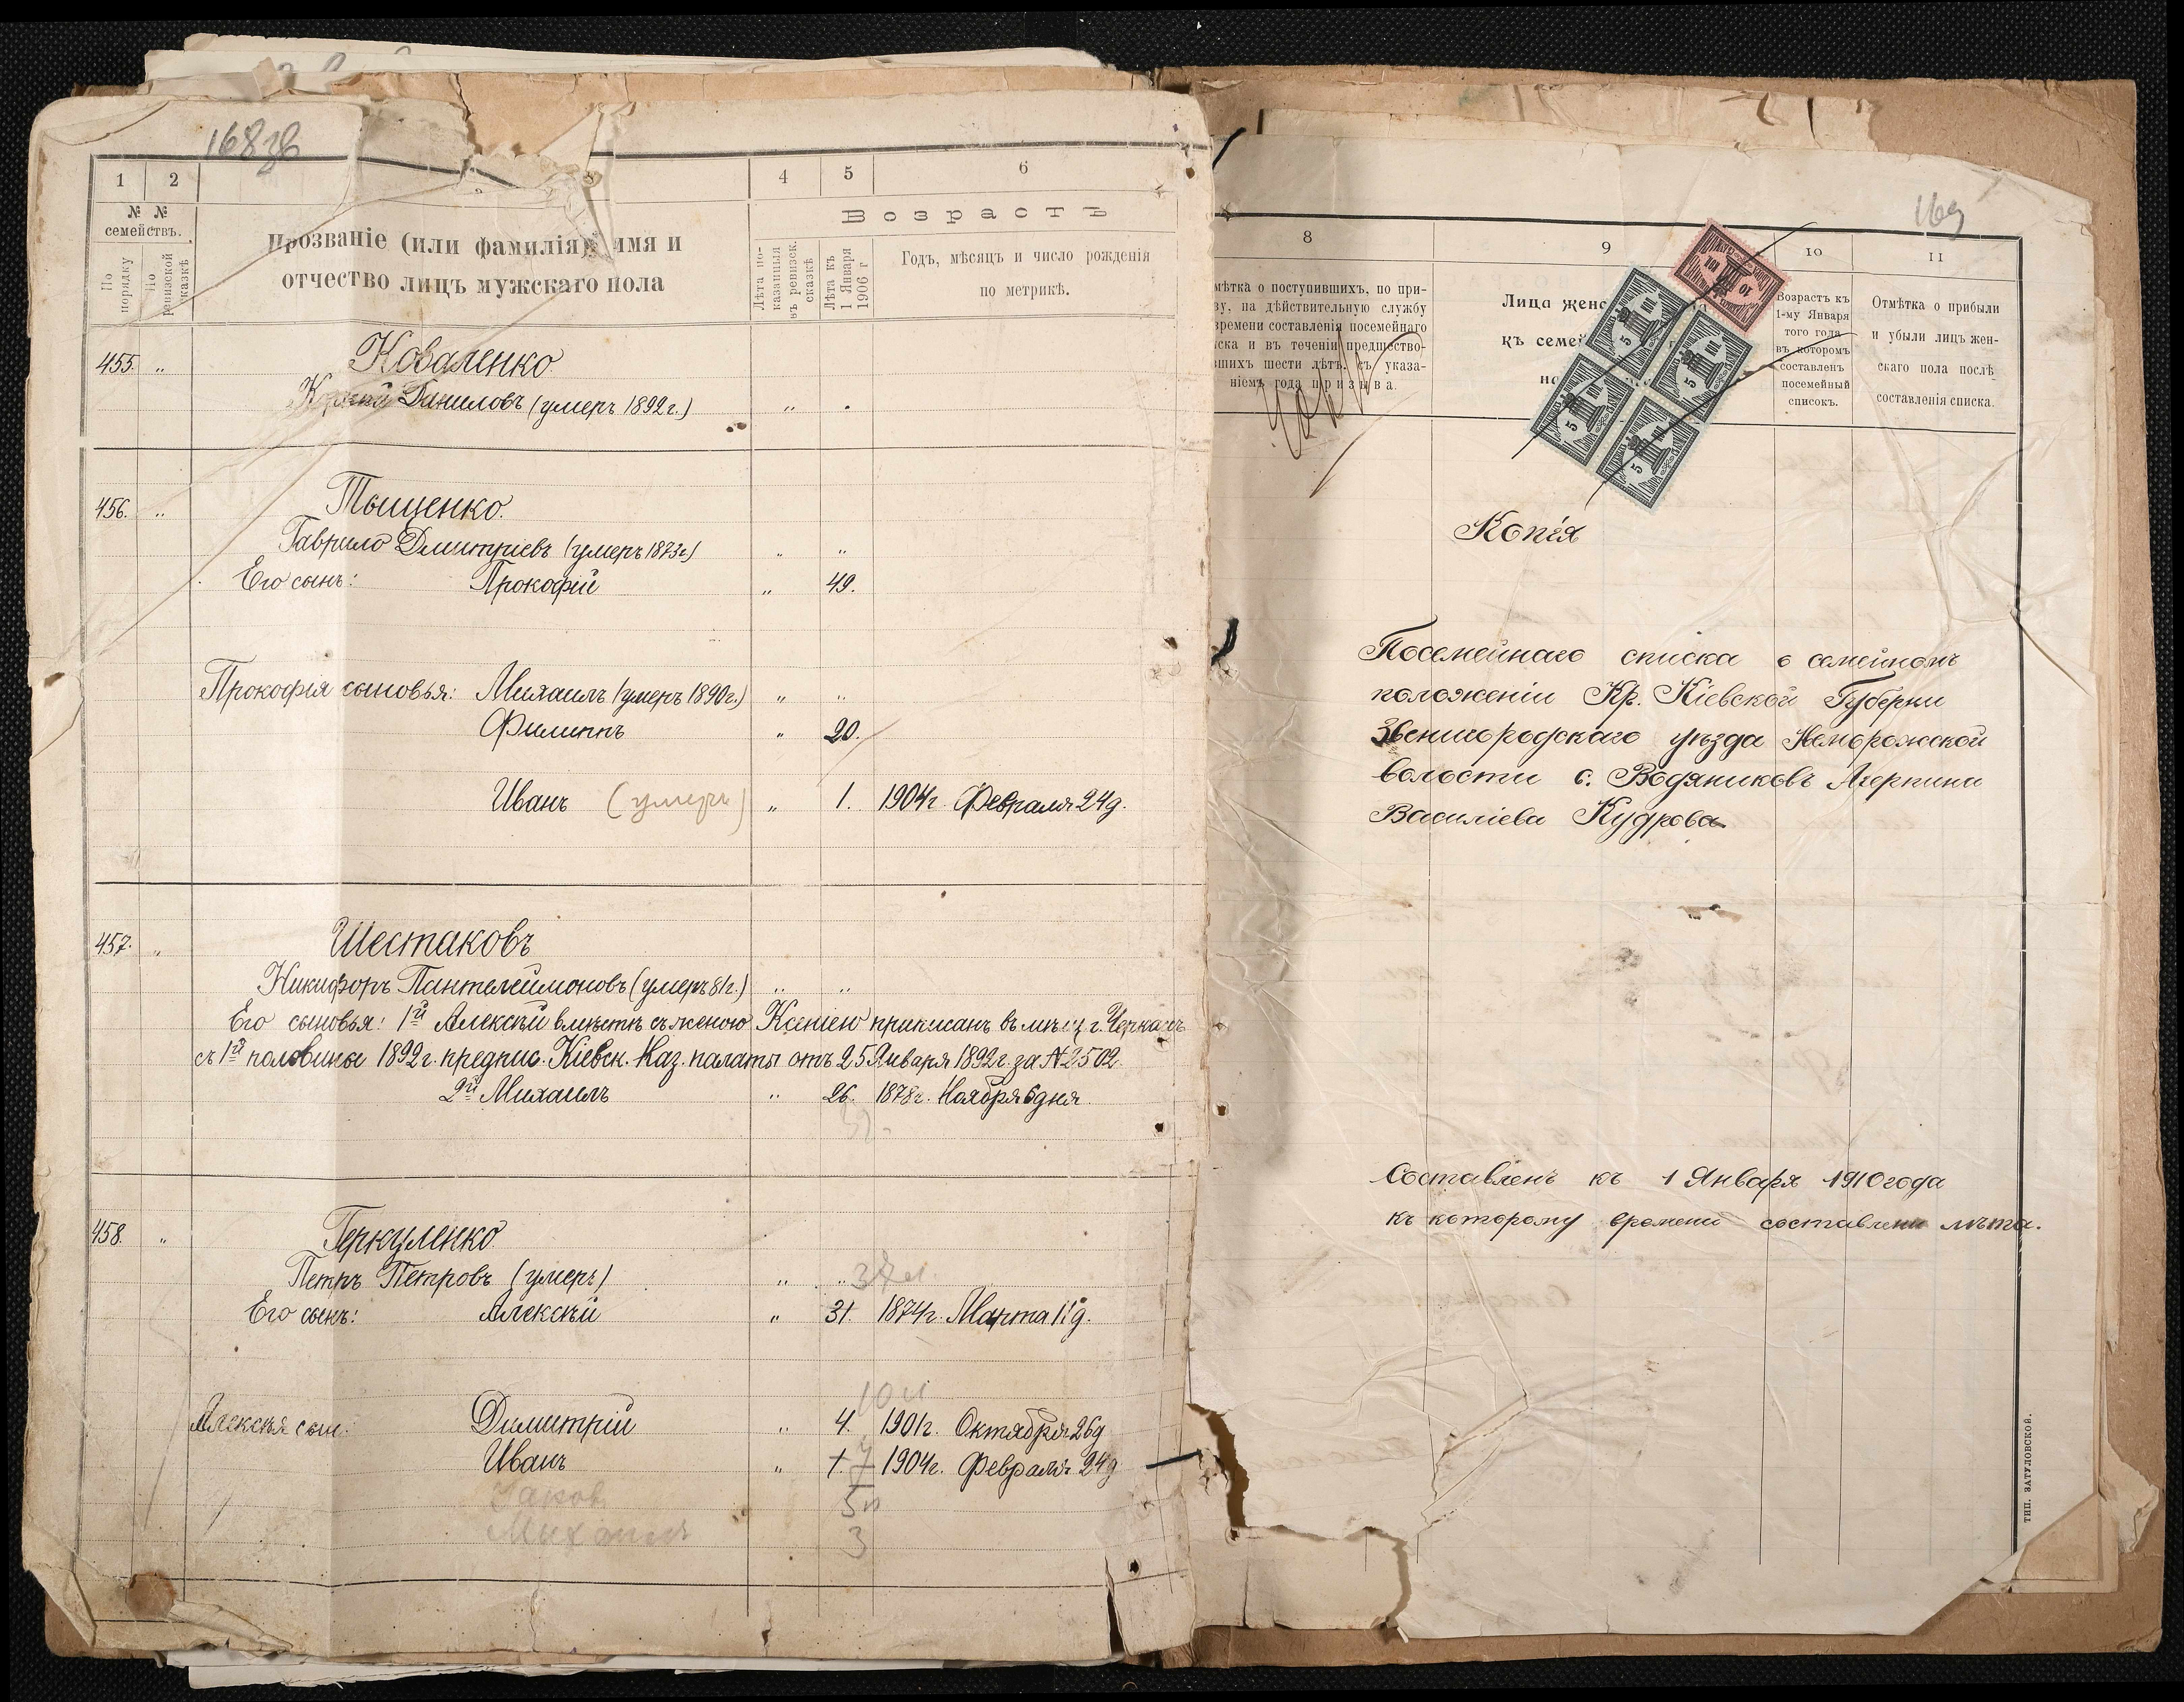 168зв
1 2 3 4 5 6
№ № семействъ.
По порядку
По ревизской сказкѣ
Прозваніе (или фамилія) имя и
отчество лицъ мужскаго пола
Лѣта показанныя въ ревизск. сказкѣ
Возрастъ
Лѣта къ 1 Января 1906 г
Годъ, мѣсяцъ и число рожденія
по метрикѣ.
455. „ Коваленко
Даниловъ (умеръ 1892 г.) „
456. „ Тыщенко.
Гаврило Дмитріевъ (умеръ 1873г) „ „
Его сынъ: Прокофій „ 49.
Прокофія сыновья: Михаилъ (умеръ 1890г.) „ „
Филиппъ „ 20.
Иванъ (умеръ) „ 1. 1904г. Февраля 24д.
457. „ Шестаковъ
Никифоръ Пантелеймоновъ (умеръ 81г.) „ „
Его сыновья: 1й Алексѣй вмѣстѣ съ женою Ксеніею приписанъ въ мѣщ г. Черкасъ
съ 1й половины 1892 г. предпис. Кіевск. Каз. палаты отъ 25 Января 1892г. за № 2502.
2й Михаилъ „ 26. 1878г. Ноября 6 дня
458. „ Геркуленко.
Петръ Петровъ (умеръ) „ „
Его сынъ: Алексѣй „ 31. 1874г. Марта 11д.
10
Алексѣя сын: Димитрій „ 4. 1901г. Октября 26д
Иванъ „ 1. 7 1904г. Февраля 24д
Яковъ 5
Михаилъ 3
169
8 9 10 11
мѣтка о поступившихъ, по при-
ву, на дѣйствительную службу
времени составленія посемейнаго
ска и въ теченіи предшество-
вшихъ шести лѣтъ, съ указа-
ніемъ года призыва.
Лица женс
къ семей
Возрастъ къ
1-му Января
того года
въ которомъ
составленъ
посемейный
списокъ.
Отмѣтка о прибыли
и убыли лицъ жен-
скаго пола послѣ
составленія списка.
10
5
5
5
5
Копія
Посемейнаго списка о семейномъ
положеніи Кр. Кіевской Губерни
Звенигородскаго уѣзда Неморожской
волости с. Водяниковъ Агрепина
Василіева Кудрова
Составленъ къ 1 Января 1910 года
къ которому времени составлени лѣта.
ТИП. ЗАТУЛОВСКОЙ.